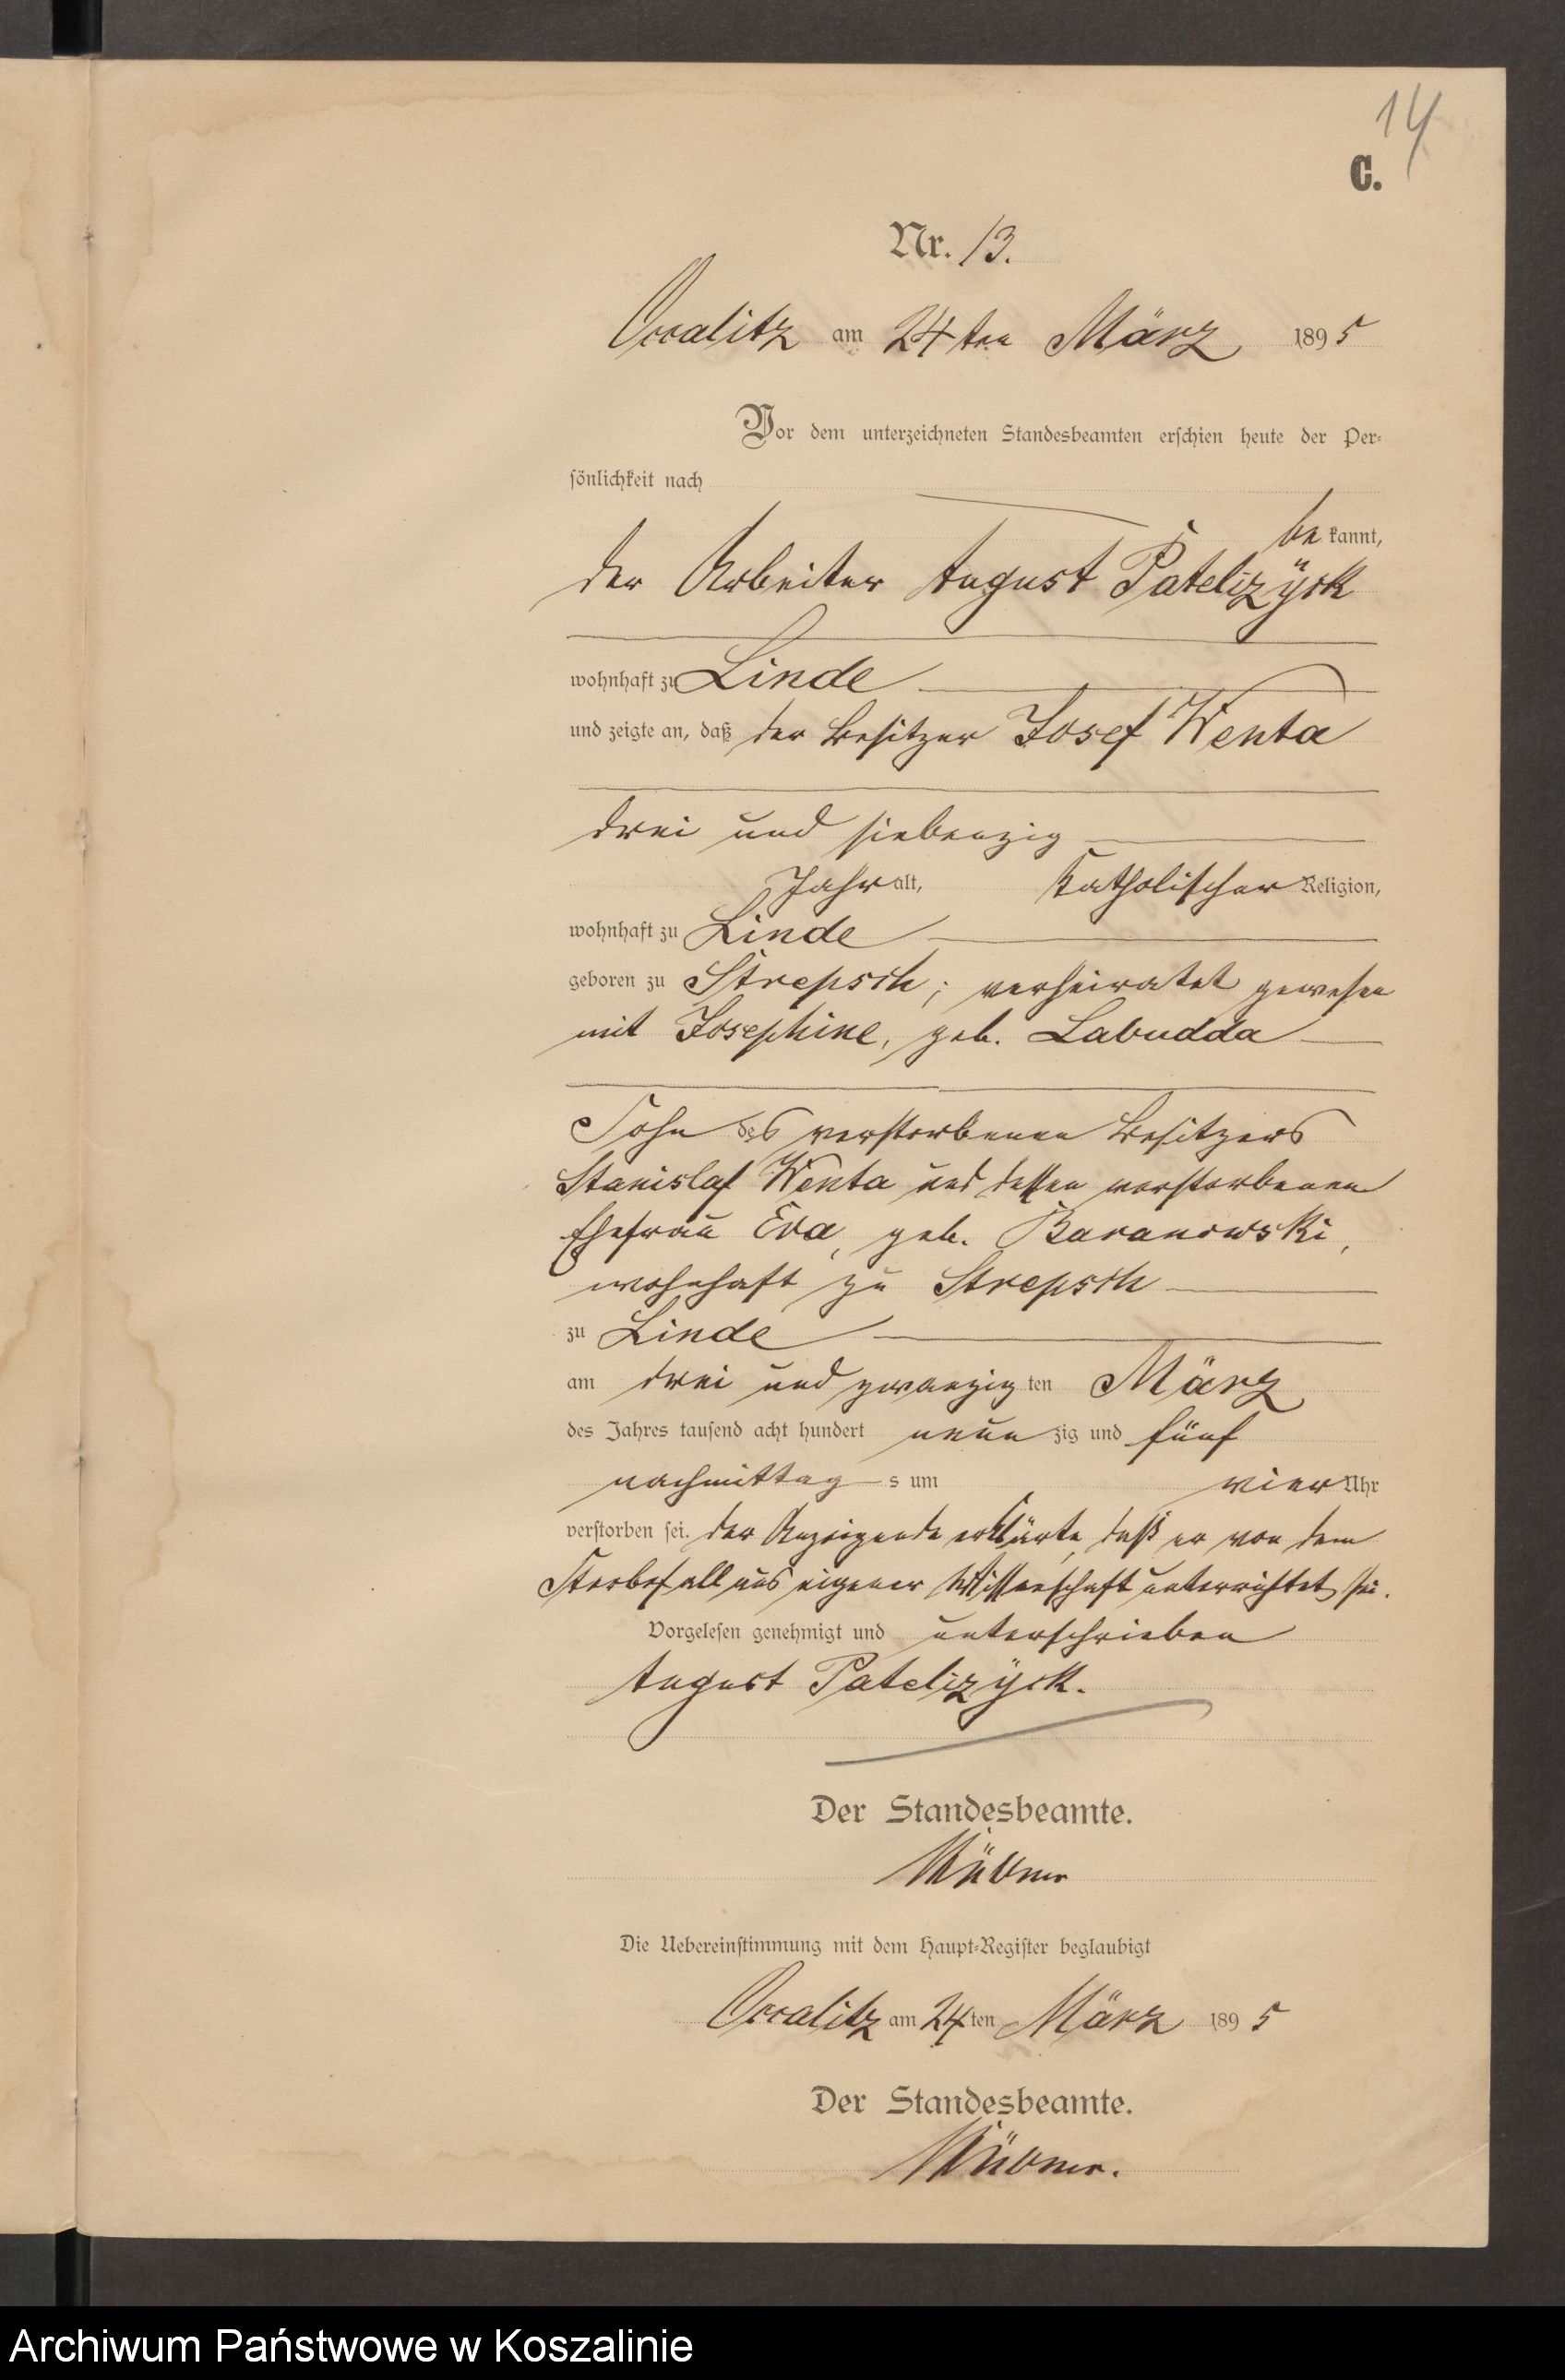 14
C.
Nr. 13.
Occalitz am 24ten März 1895
Vor dem unterzeichneten Standesbeamten erschien heute der Per-
sönlichkeit nach
be kannt,
der Arbeiter August Patelizÿck
wohnhaft zu Linde
und zeigte an, daß der Besitzer Josef Wenta
drei und siebenzig
Jahr alt, katholischer Religion,
wohnhaft zu Linde
geboren zu Strepsch; verheiratet gewesen
mit Josephine, geb. Labudda
Sohn des verstorbenen Besitzers
Stanislaf Wenta und dessen verstorbenen
Ehefrau Eva, geb. Baranowski,
wohnhaft zu Strepsch
zu Linde
am drei und zwanzig ten März
des Jahres tausend acht hundert neun zig und fünf
nachmittag s um vier Uhr
verstorben sei. Der Anzeigende erklärte, daß er von dem
Sterbefall aus eigener Wissenschaft unterrichtet sei.
Vorgelesen genehmigt und unterschrieben
August Patelizÿck.
Der Standesbeamte.
Die Uebereinstimmung mit dem Haupt-Register beglaubigt
Occalitz am 24ten März 1895
Der Standesbeamte.
Archiwum Państwowe w Koszalinie